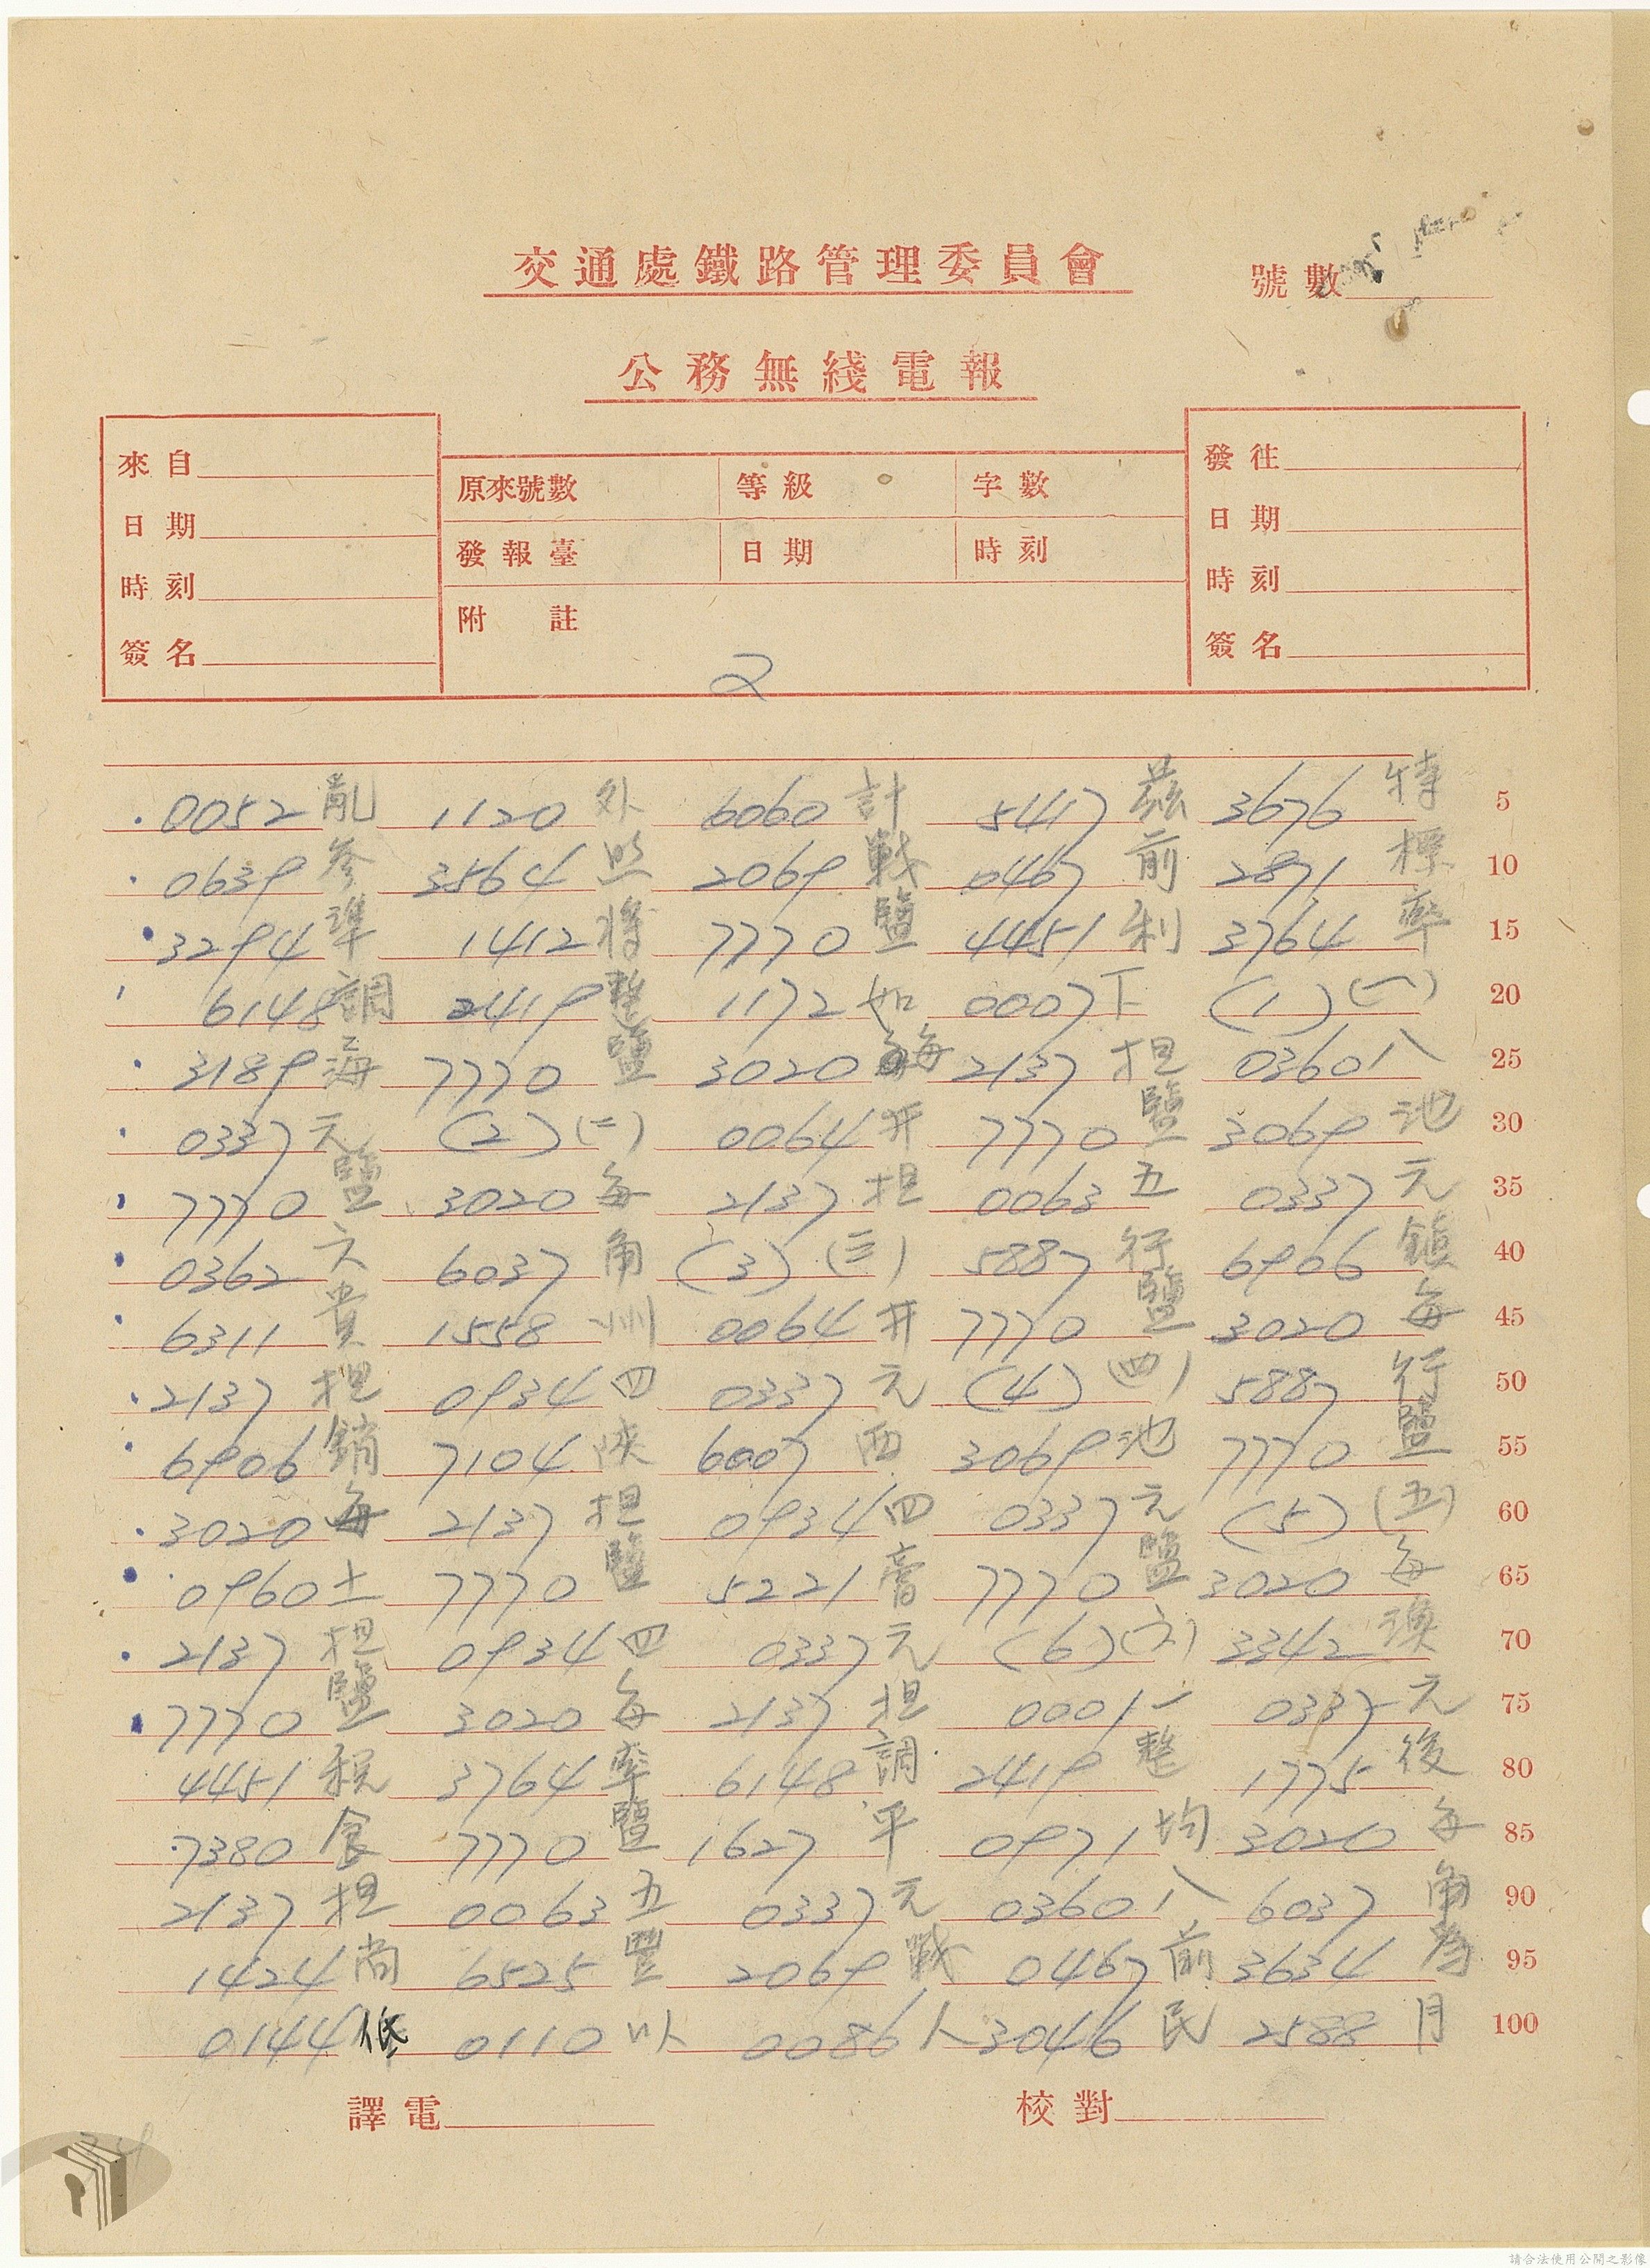 交通處鐵路管理委員會
號數
公務無綫電報
來自
日期
時刻
簽名
原來號數 等級 字數
發報臺 日期 時刻
附註
2
發往
日期
時刻
簽名
0052 亂 1120 外 6060 計 5417 茲 3676 特 5
0639 參 3564 照 2069 戰 0467 前 2871 標 10
3294 準 1412 將 7770 鹽 4451 利 3764 率 15
6148 調 2419 整 1172 如 0007 下 (1) (一) 20
3189 海 7770 鹽 3020 每 2137 担 0360 八 25
0337 元 (2) (二) 0064 井 7770 鹽 3069 池 30
7770 鹽 3020 每 2137 担 0063 五 0337 元 35
0362 六 6037 角 (3) (三) 5887 行 6906 鎮 40
6311 貴 1558 州 0064 井 7770 鹽 3020 每 45
2137 担 0934 四 0337 元 (4) (四) 5887 行 50
6906 銷 7104 陝 6007 西 3069 池 7770 鹽 55
3020 每 2137 担 0934 四 0337 元 (5) (五) 60
0960 土 7770 鹽 5221 膏 7770 鹽 3020 每 65
2137 担 0934 四 0337 元 (6) (六) 3342 渙 70
7770 鹽 3020 每 2137 担 0001 一 0337 元 75
4451 税 3764 率 6148 調 2419 整 1775 後 80
7380 食 7770 鹽 1627 平 0971 均 3020 每 85
2137 担 0063 五 0337 元 0360 八 6037 角 90
1424 尚 6525 豐 2069 戰 0467 前 3634 為 95
0144 低 0110 以 0086 人 3046 民 2588 月 100
譯電
校對
34
請合法使用公開之影像